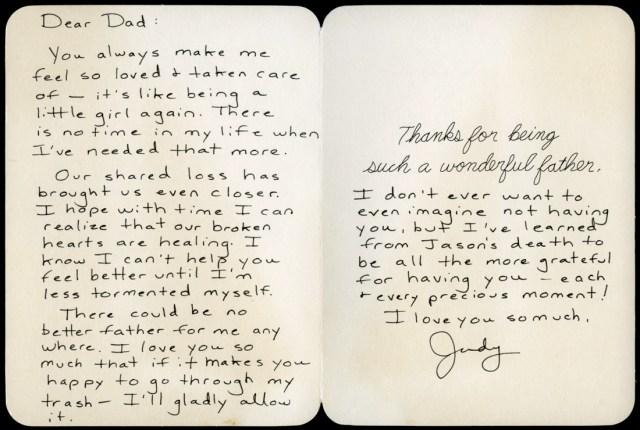 Dear Dad:
You always make me
feel so loved & taken care
of — it's like being a
little girl again. There
is no time in my life when
I've needed that more.
Our shared loss has
brought us even closer.
I hope with time I can
realize that our broken
hearts are healing. I
know I can't help you
feel better until I'm
less tormented myself.
There could be no
better father for me any
where. I love you so
much that if it makes you
happy to go through my
trash — I'll gladly allow
it.
Thanks for being
such a wonderful father.
I don't ever want to
even imagine not having
you, but I've learned
from Jason's death to
be all the more grateful
for having you — each
& every precious moment!
I love you so much,
Judy